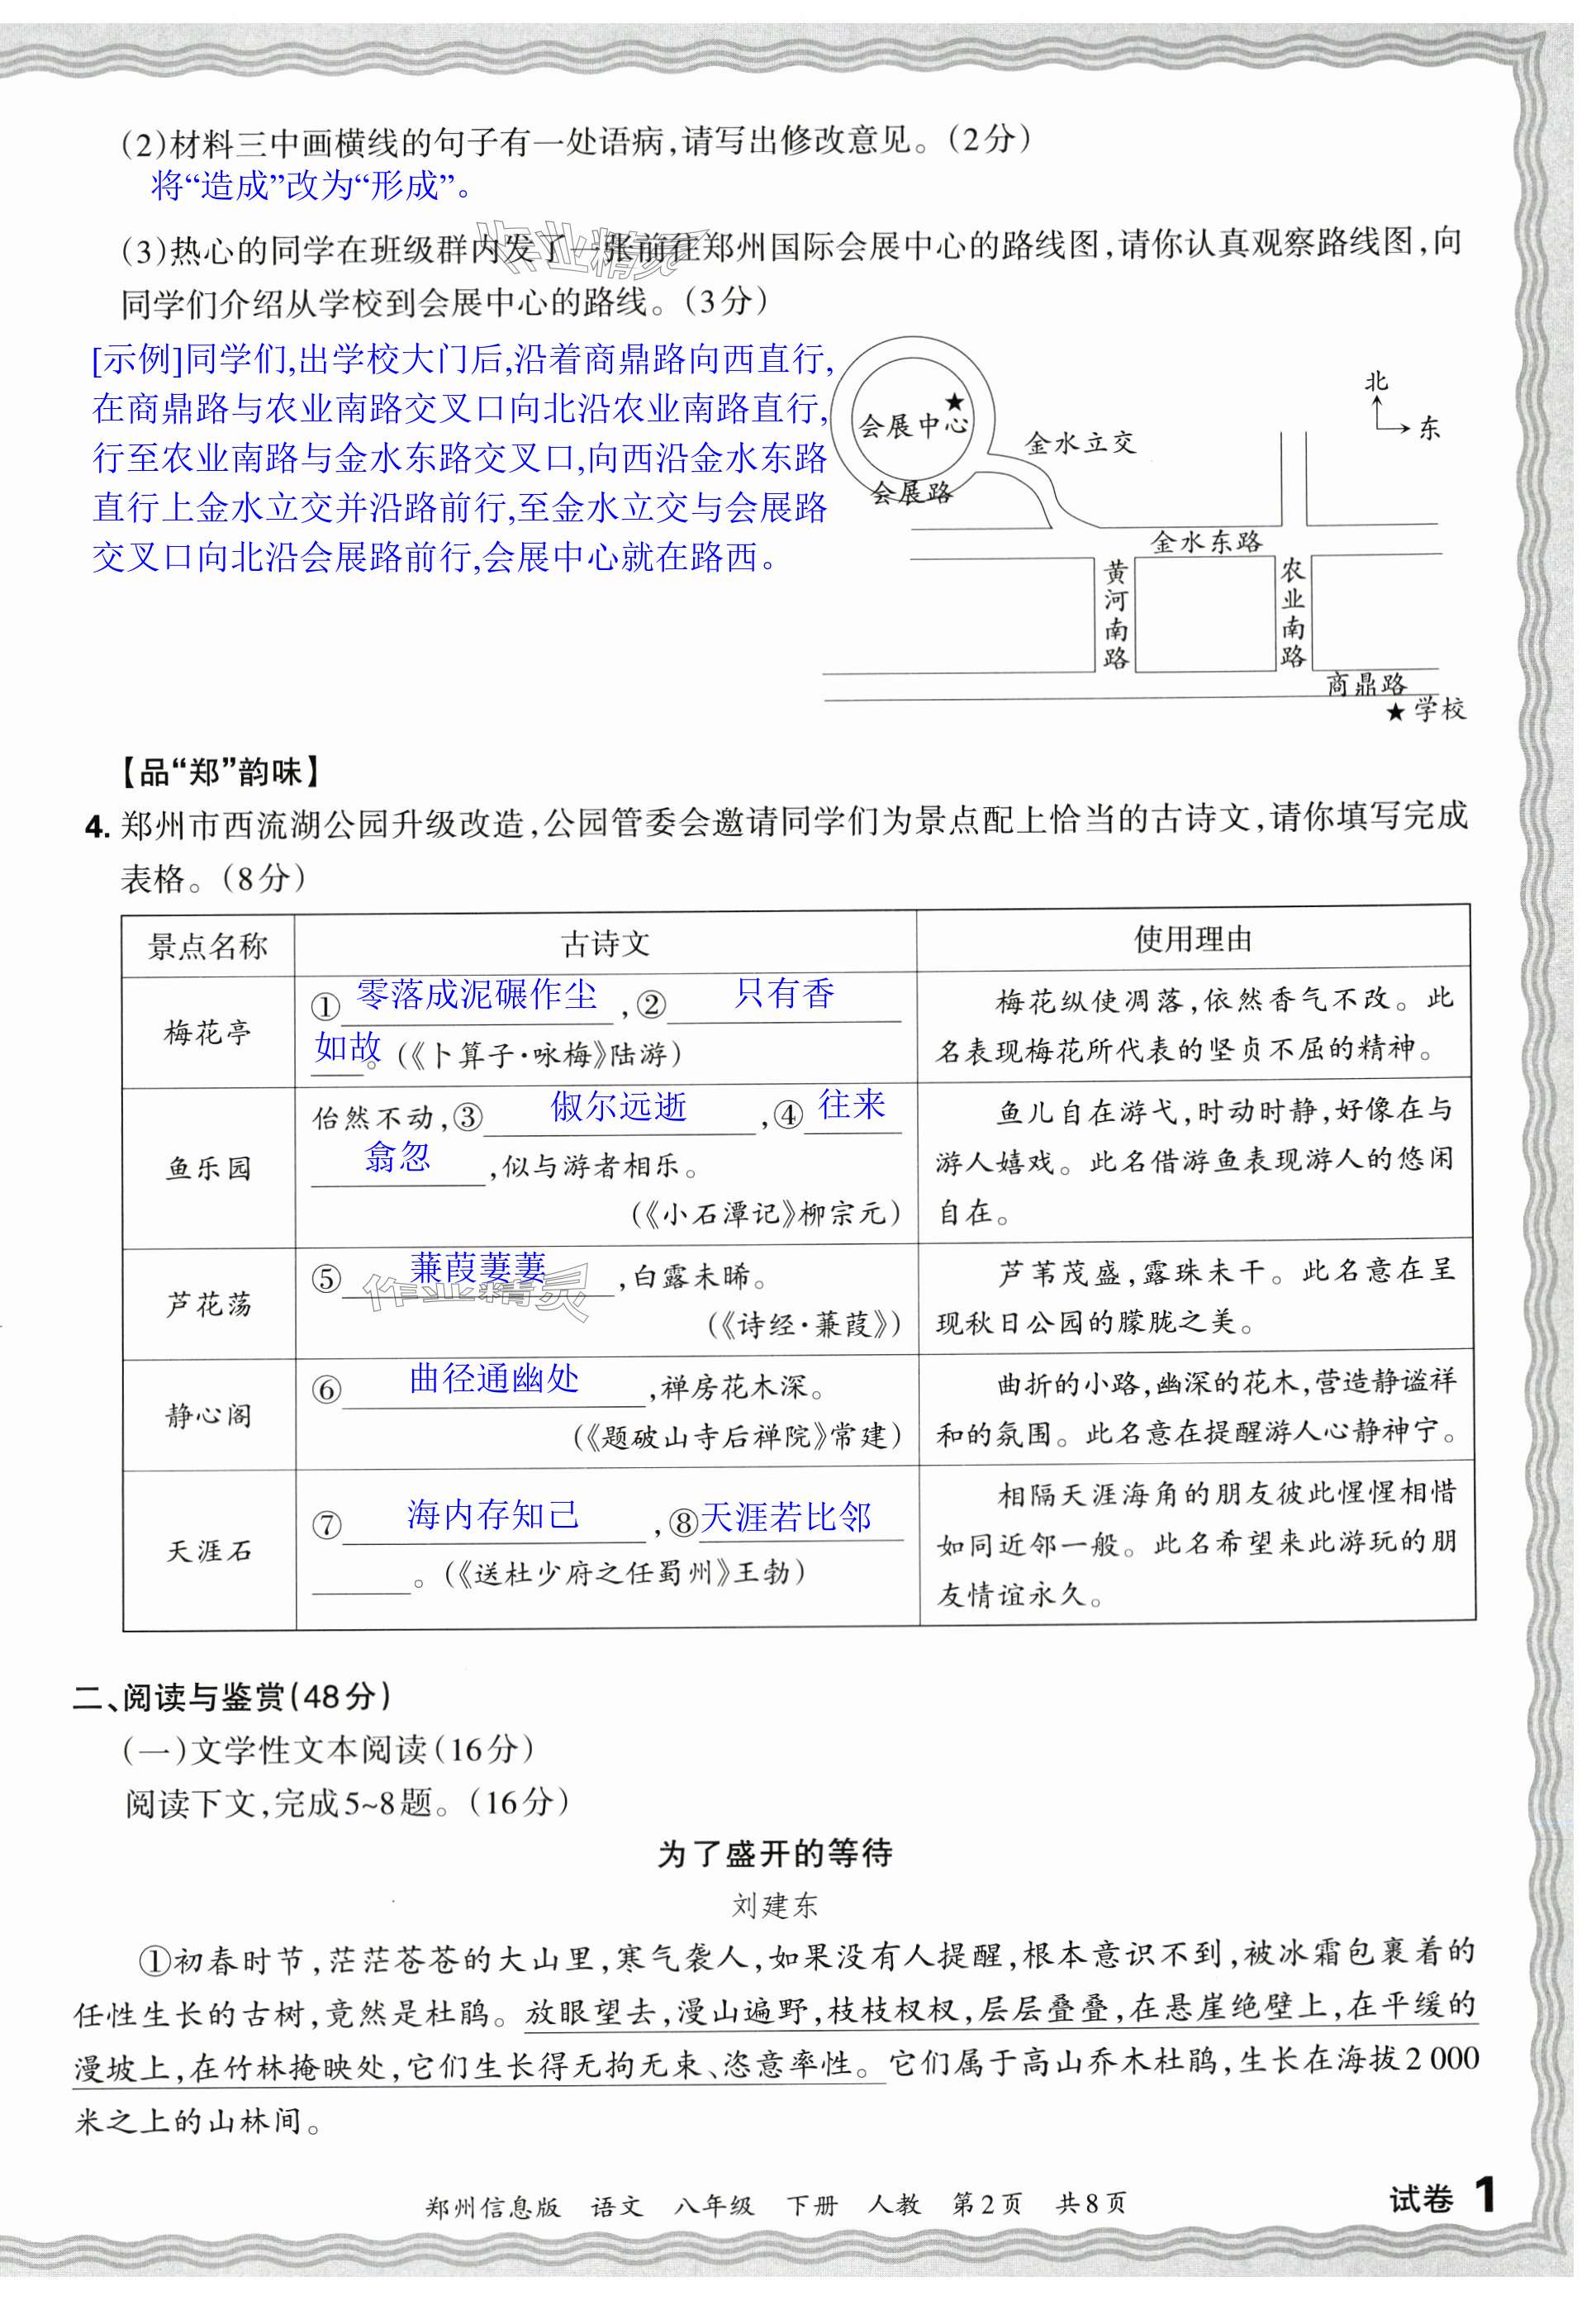 (2)材料三中画横线的句子有一处语病,请写出修改意见。(2分)
将“造成”改为“形成”。
(3)热心的同学在班级群内发了一张前往郑州国际会展中心的路线图,请你认真观察路线图,向
同学们介绍从学校到会展中心的路线。(3分)
作业精灵
[示例]同学们,出学校大门后,沿着商鼎路向西直行,
在商鼎路与农业南路交叉口向北沿农业南路直行,
行至农业南路与金水东路交叉口,向西沿金水东路
直行上金水立交并沿路前行,至金水立交与会展路
交叉口向北沿会展路前行,会展中心就在路西。
北
东
★
会展中心
金水立交
会展路
金水东路
黄河南路
农业南路
商鼎路
★学校
【品“郑”韵味】
4. 郑州市西流湖公园升级改造,公园管委会邀请同学们为景点配上恰当的古诗文,请你填写完成
表格。(8分)
景点名称 古诗文 使用理由
梅花亭
①零落成泥碾作尘,②只有香
如故。(《卜算子·咏梅》陆游)
梅花纵使凋落,依然香气不改。此
名表现梅花所代表的坚贞不屈的精神。
鱼乐园
佁然不动,③俶尔远逝,④往来
翕忽,似与游者相乐。
(《小石潭记》柳宗元)
鱼儿自在游弋,时动时静,好像在与
游人嬉戏。此名借游鱼表现游人的悠闲
自在。
芦花荡
⑤蒹葭萋萋,白露未晞。
作业精灵
(《诗经·蒹葭》)
芦苇茂盛,露珠未干。此名意在呈
现秋日公园的朦胧之美。
静心阁
⑥曲径通幽处,禅房花木深。
(《题破山寺后禅院》常建)
曲折的小路,幽深的花木,营造静谧祥
和的氛围。此名意在提醒游人心静神宁。
天涯石
⑦海内存知己,⑧天涯若比邻
。(《送杜少府之任蜀州》王勃)
相隔天涯海角的朋友彼此惺惺相惜
如同近邻一般。此名希望来此游玩的朋
友情谊永久。
二、阅读与鉴赏(48分)
(一)文学性文本阅读(16分)
阅读下文,完成5~8题。(16分)
为了盛开的等待
刘建东
①初春时节,茫茫苍苍的大山里,寒气袭人,如果没有人提醒,根本意识不到,被冰霜包裹着的
任性生长的古树,竟然是杜鹃。放眼望去,漫山遍野,枝枝杈杈,层层叠叠,在悬崖绝壁上,在平缓的
漫坡上,在竹林掩映处,它们生长得无拘无束、恣意率性。它们属于高山乔木杜鹃,生长在海拔2 000
米之上的山林间。
郑州信息版 语文 八年级 下册 人教 第2页 共8页
试卷 1